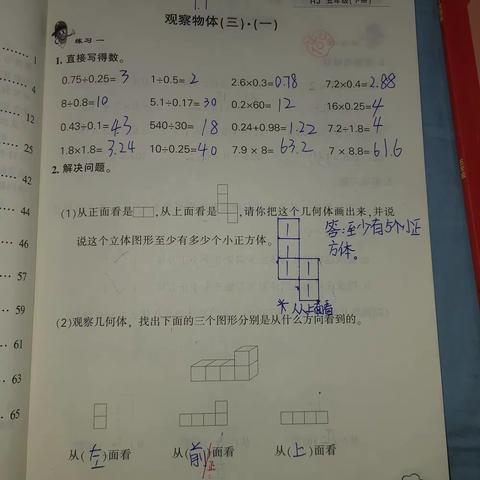 1.1
RJ 五年级(下册)
观察物体(三)·(一)
练习一
1. 直接写得数。
0.75÷0.25=3 1÷0.5=2 2.6×0.3=0.78 7.2×0.4=2.88
8÷0.8=10 5.1÷0.17=30 0.2×60=12 16×0.25=4
0.43÷0.1=43 540÷30=18 0.24+0.98=1.22 7.2÷1.8=4
1.8×1.8=3.24 10÷0.25=40 7.9×8=63.2 7×8.8=61.6
2. 解决问题。
(1)从正面看是,从上面看是,请你把这个几何体画出来,并说
说这个立体图形至少有多少个小正方体。
1
1
1 1
1
答:至少有5个小正
方体。
从上面看
(2)观察几何体,找出下面的三个图形分别是从什么方向看到的。
从(左)面看 从(前)面看 从(上)面看
正
1
4
12
25
42
44
46
57
59
61
63
65